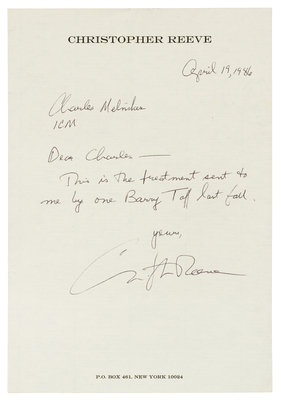 CHRISTOPHER REEVE
April 19, 1986
Charles Melniker
ICM
Dear Charles —
This is the treatment sent to
me by one Barry Taff last fall.
yours,
P.O. BOX 461, NEW YORK 10024